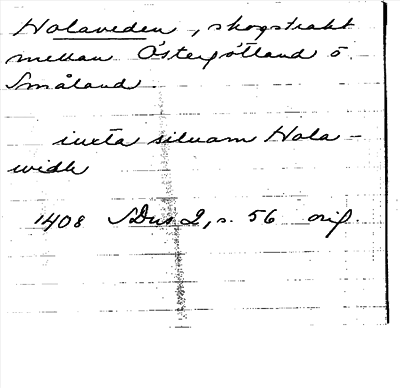 Holaveden, skogstrakt
mellan Östergötland o.
Småland.
iuxta siluam Hola-
widh
1408 SDns 2, s. 56 orig.